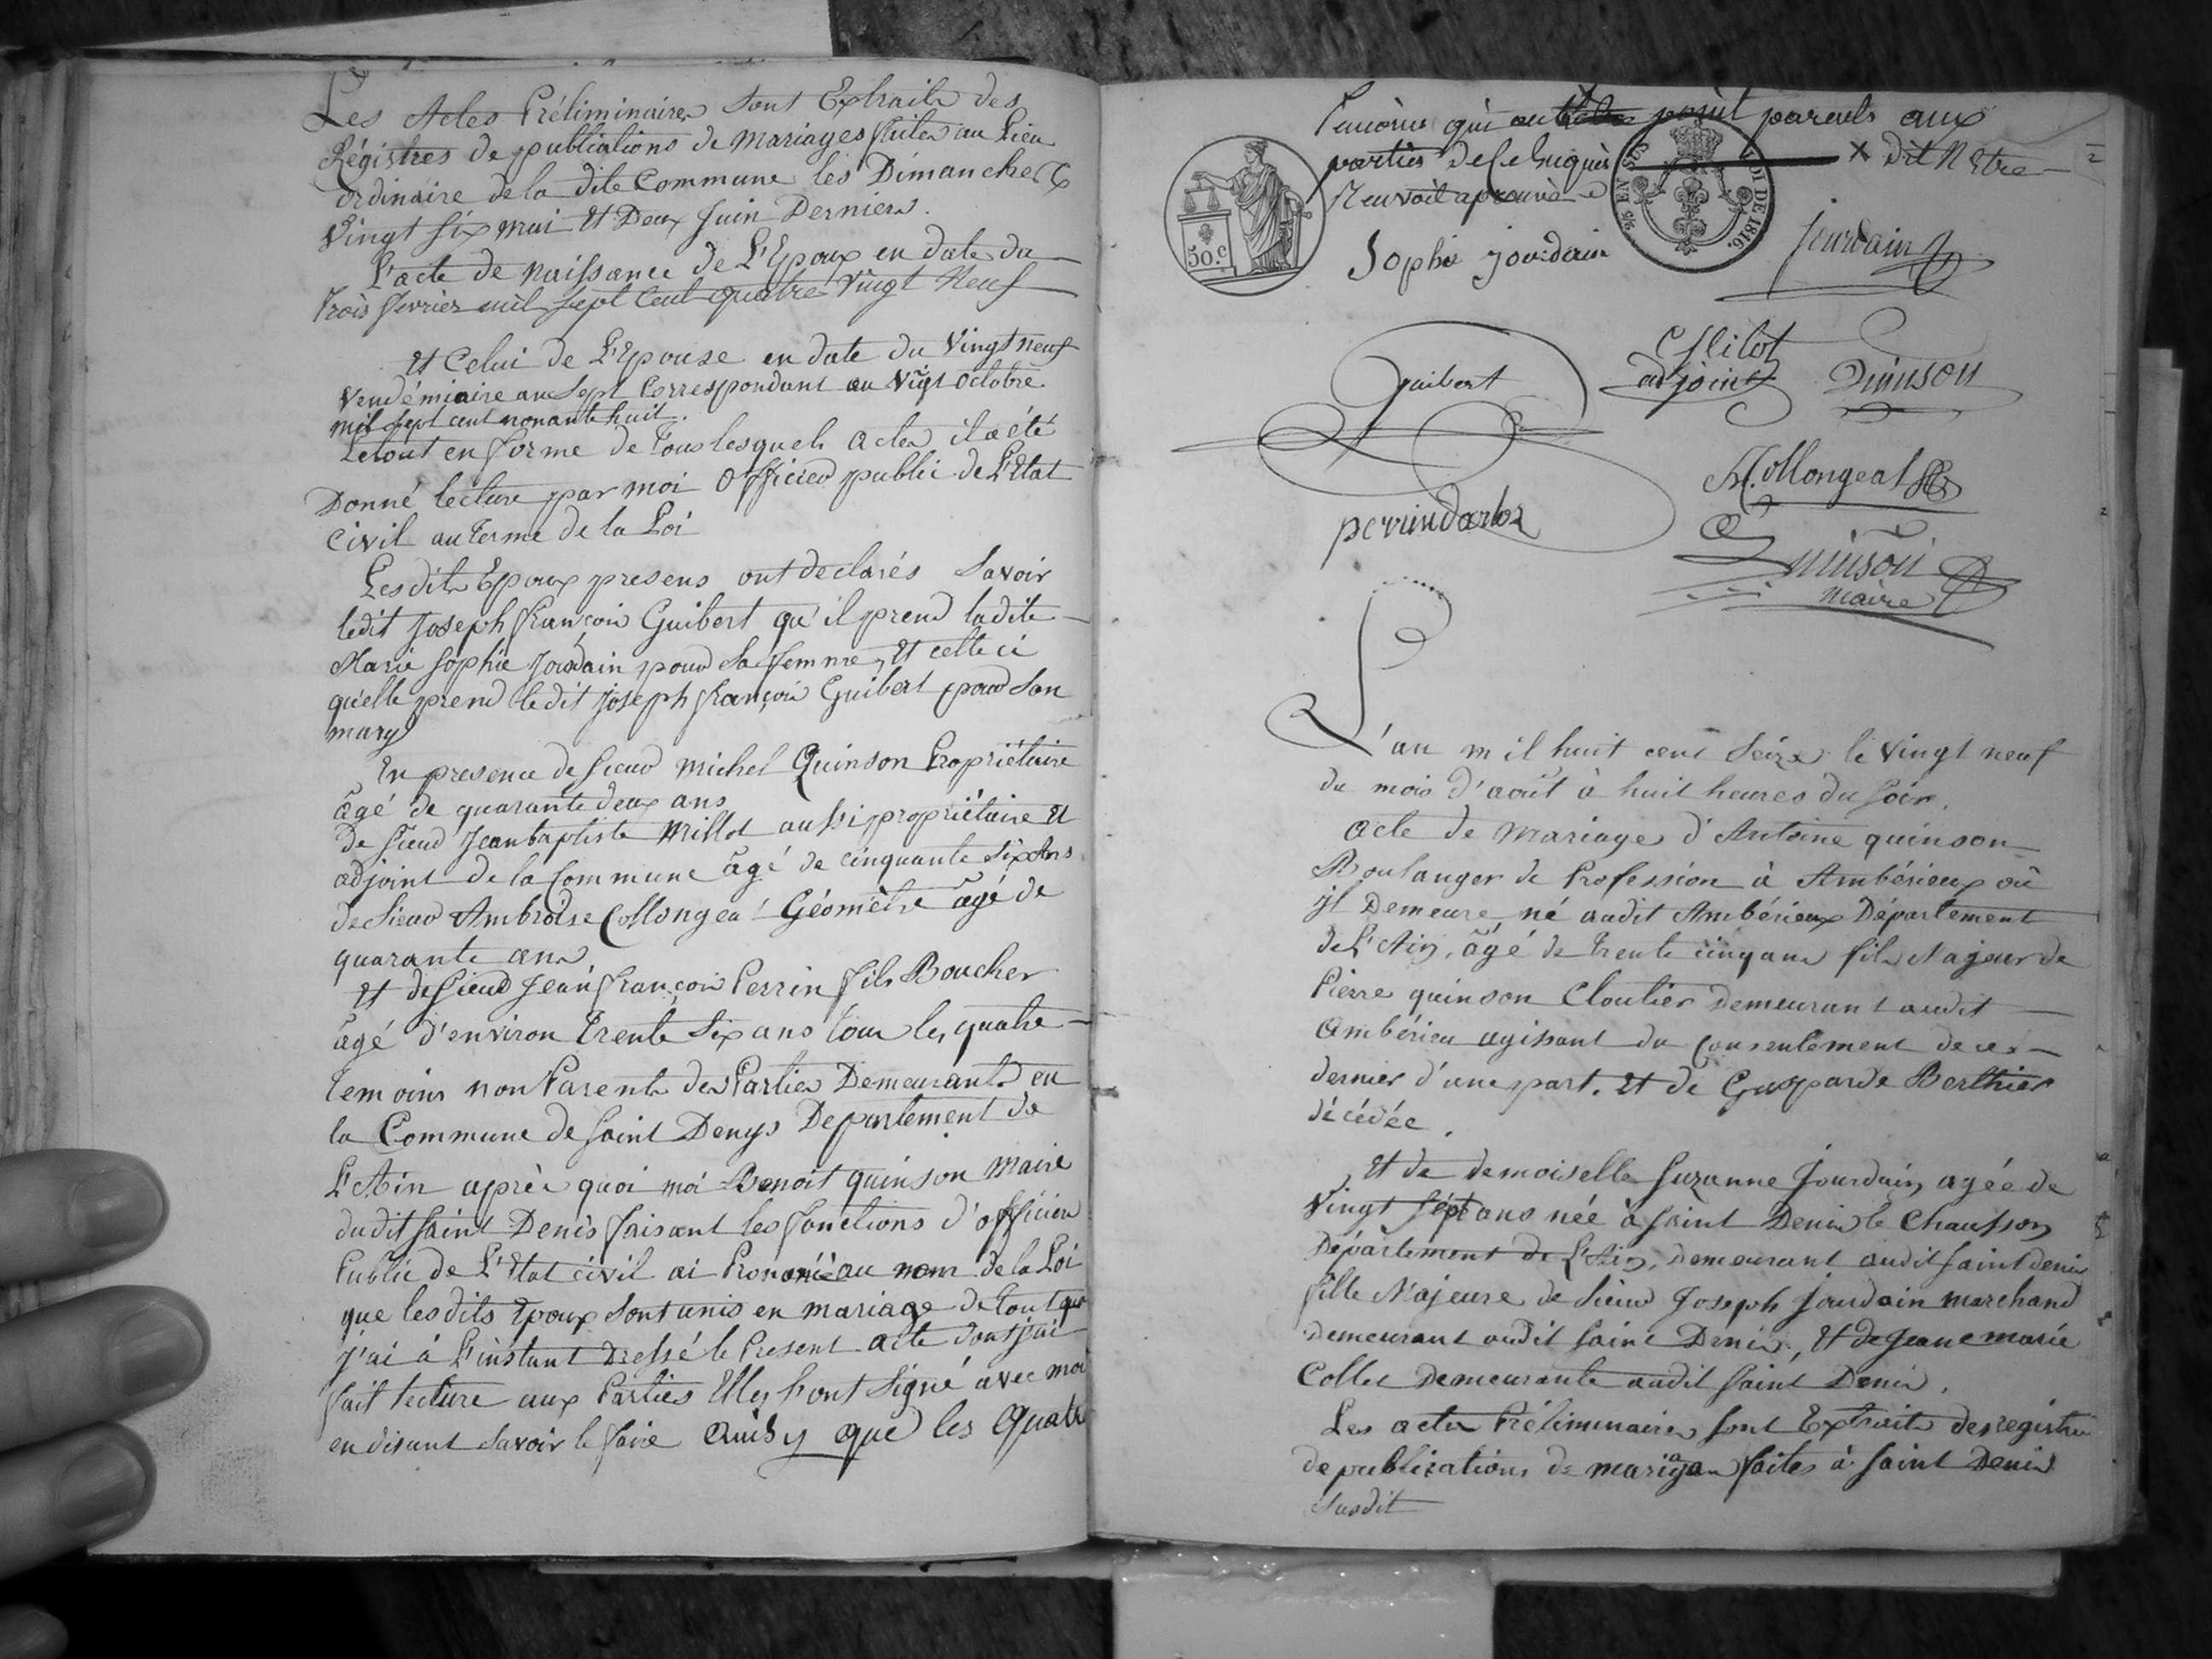 Les Actes Préliminaires sont Extraits des
Régistres de publications de Mariages faites au Lieu
ordinaire de la dite Commune les Dimanches
Vingt six mai et Deux Juin Derniers.
L'acte de naissance de L'Epoux en date du
trois fevrier mil sept cent quatre Vingt Neuf
et Celui de L'Epouse en date du Vingt neuf
Vendémiaire an Sept Correspondant au Vigt octobre
mil sept cent nonante huit.
Le tout en forme de tous lesquels actes il a été
Donné lecture par moi officier public de L'Etat
Civil au terme de la Loi
Lesdits Epoux presens ont declarés Savoir
ledit Joseph françois Guibert qu'il prend ladite
Marie Sophie Jourdain pour sa femme, et celle ci
qu'elle prend ledit Joseph françois Guibert pour son
mary
En presence de sieur Michel Quinson Propriétaire
âgé de quarante deux ans
de sieur Jean baptiste Millot aussi propriétaire et
adjoint de la Commune âgé de cinquante six ans
de sieur Ambroise Collongeat Géomètre âgé de
quarante ans
et de sieur Jean françois Perrin fils Boucher
âgé d'environ trente six ans tous les quatre
temoins non Parents des Parties Demeurants en
la Commune de saint Denys Departement de
L'Ain après quoi moi Benoit quinson Maire
dudit saint Denis faisant les fonctions d'officier
Public de L'Etat civil ai Prononcé au nom de la Loi
que lesdits Epoux sont unis en mariage de tout quoi
j'ai à L'instant Dressé le Present acte dont j'ai
fait lecture aux Parties elles l'ont signé avec moi
en disant savoir le faire Ainsy que les Quatre
temoins qui point parents aux
parties X dit N Etre
30.c
EN SUS
DI DE 1816.
Sophie jourdain
Jourdain
Guibert
Millot
adjoint
Quinson
A. Collongeat
perrin
Quinson
maire
L'an mil huit cent Seize le Vingt neuf
du mois d'août à huit heures du soir.
acte de Mariage d'Antoine quinson
Boulanger de Profession à Ambérieux où
il Demeure né audit Ambérieux Département
de L'Ain, âgé de trente cinq ans fils Majeur de
Pierre quinson Cloutier Demeurant audit
Ambérieu agissant du consentement de ce
dernier d'une part. et de Gasparde Berthier
décédée.
et de demoiselle Suzanne Jourdain agée de
Vingt sept ans née à saint Denis le Chausson
Département de L'Ain, demeurant audit saint denis
fille Majeure de sieur Joseph Jourdain marchand
demeurant audit saint Denis, et de Jeane marie
Collet Demeurante audit saint Denis.
Les actes Préliminaires sont Extraits des registres
de publications de mariages faites à saint Denis
susdit